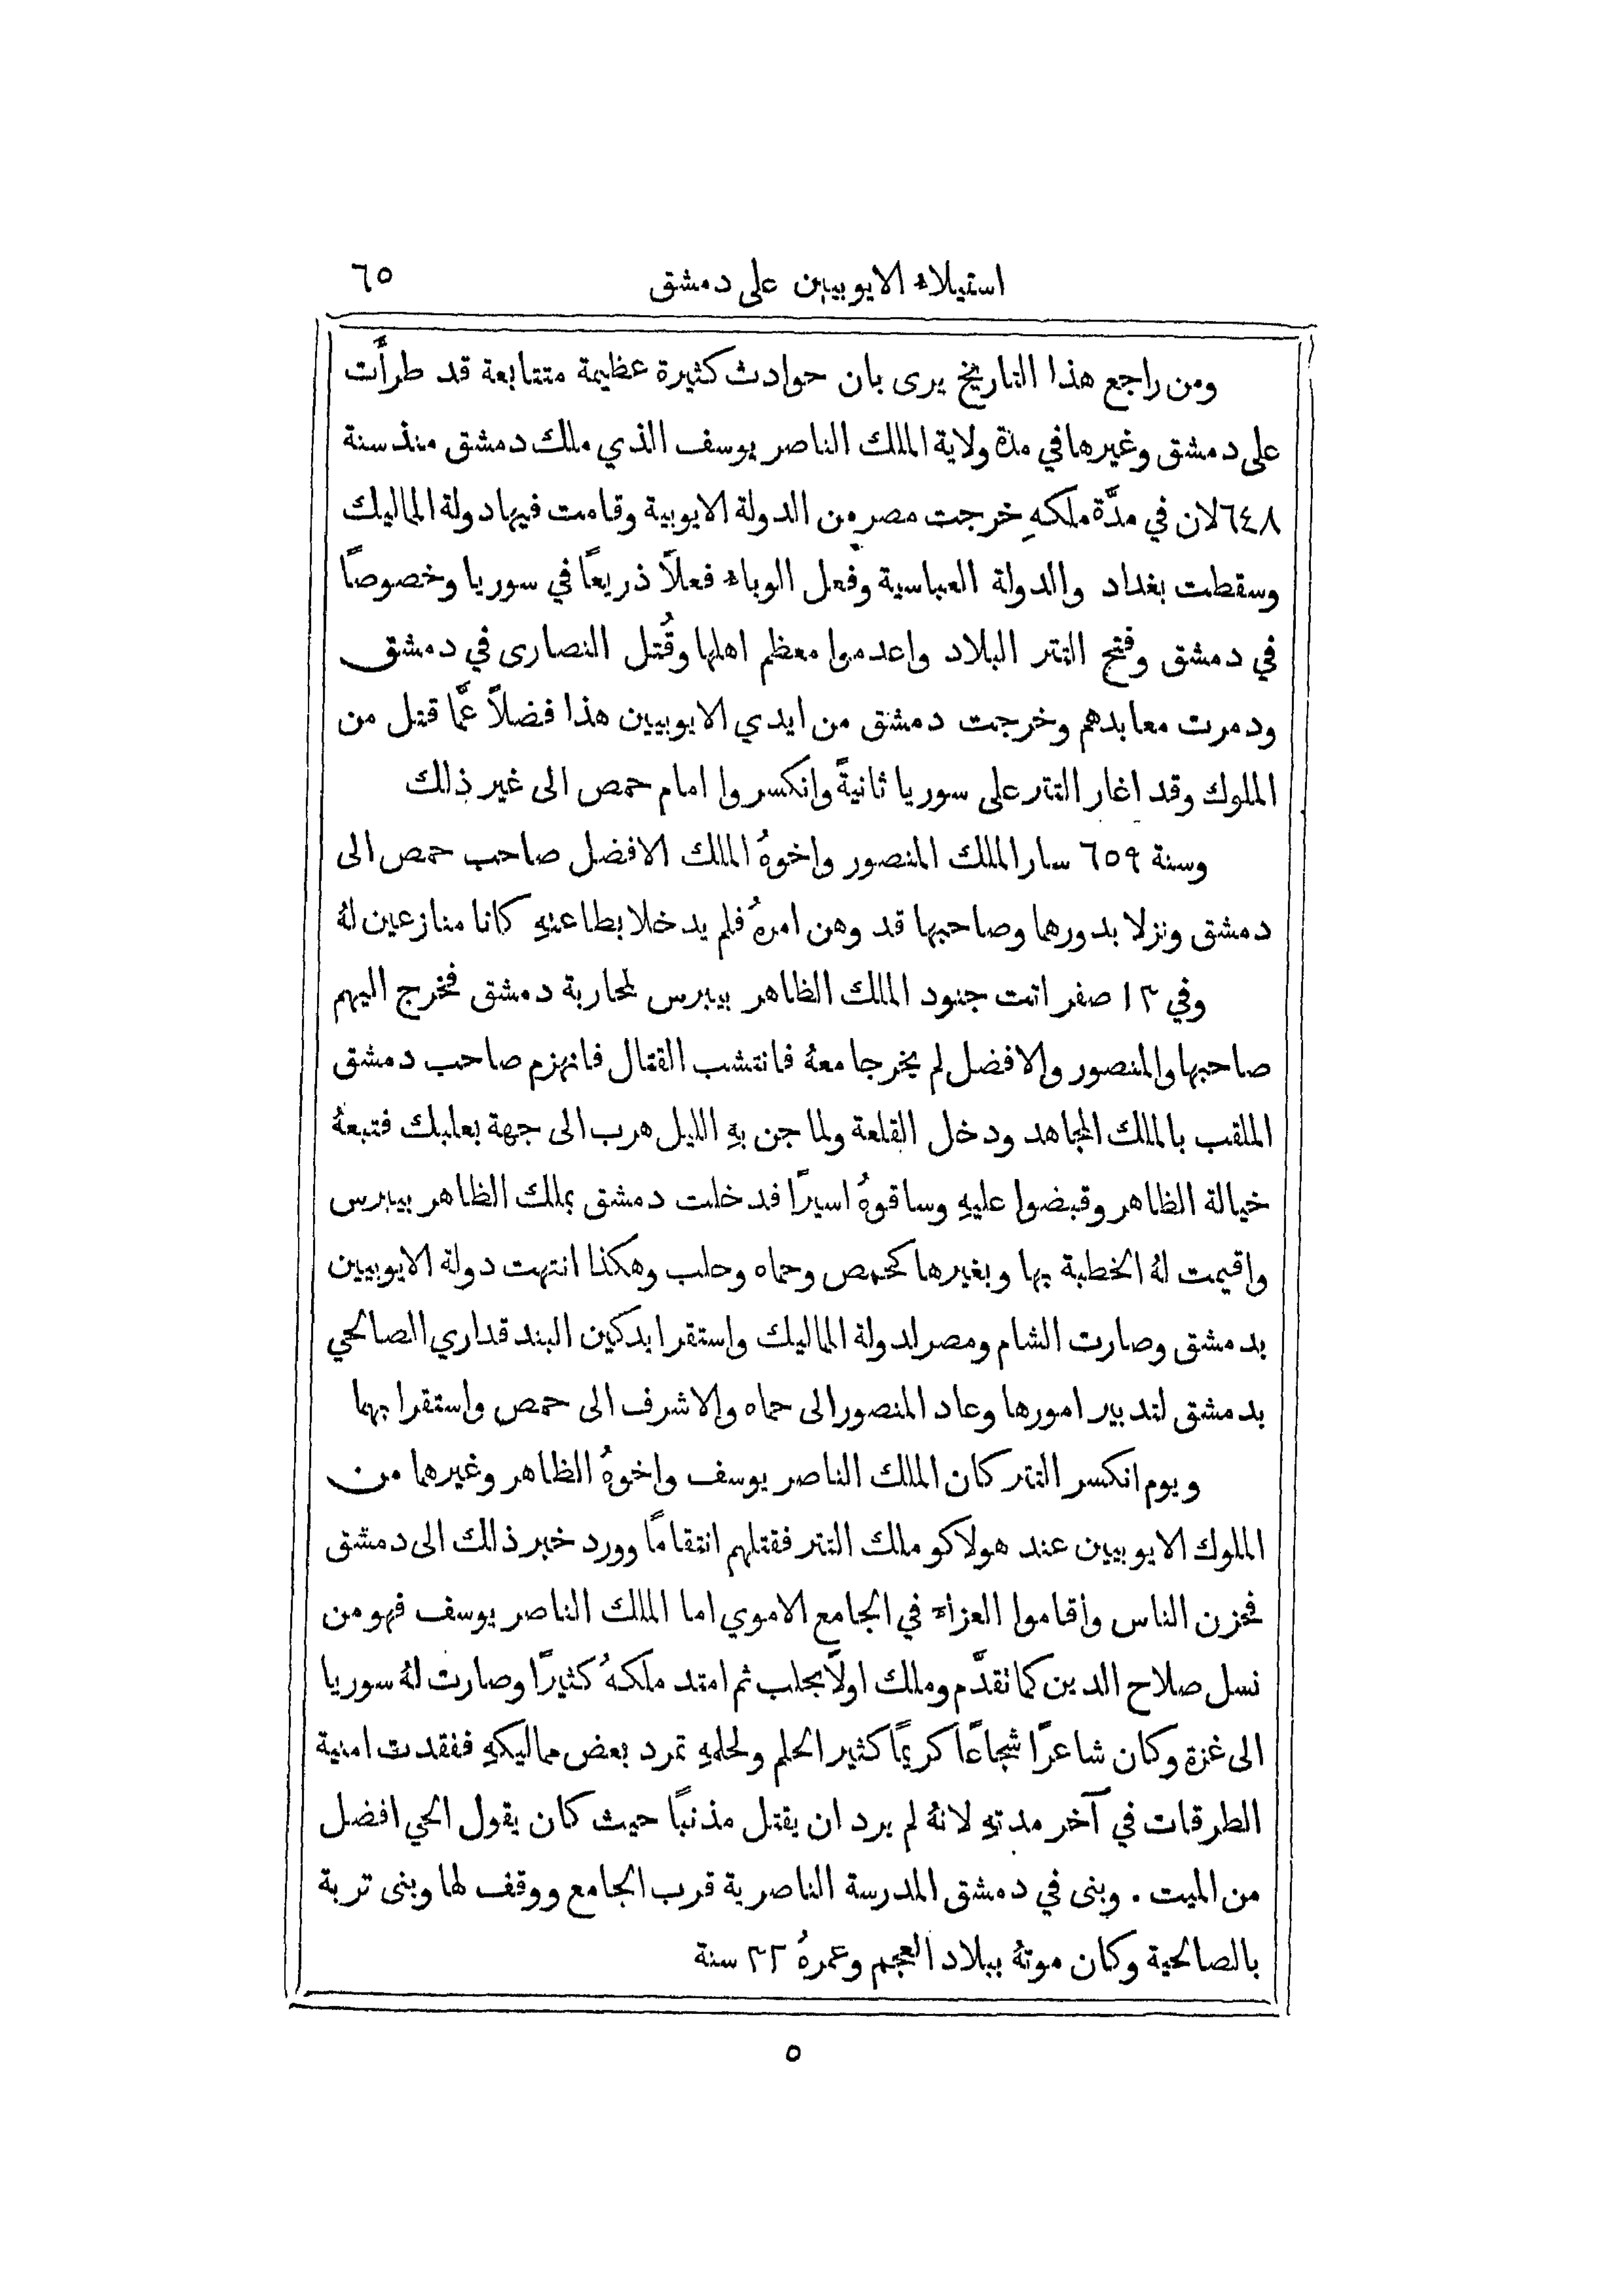 استيلاء الايوبيين على دمشق ٦٥
ومن راجع هذا التاريخ يرى بان حوادث كثيرة عظيمة متتابعة قد طرأَت
على دمشق وغيرها في مدة ولاية الملك الناصر يوسف الذي ملك دمشق منذ سنة
٦٤٨ لان في مدَّة ملكهِ خرجت مصر من الدولة الايوبية وقامت فيها دولة المماليك
وسقطت بغداد والدولة العباسية وفعل الوباء فعلاً ذريعاً في سوريا وخصوصاً
في دمشق وفتح التتر البلاد واعدموا معظم اهلها وقُتل النصارى في دمشق
ودمرت معابدهم وخرجت دمشق من ايدي الايوبيين هذا فضلاً عمَّا قتل من
الملوك وقد اغار التتر على سوريا ثانيةً وانكسروا امام حمص الى غير ذلك
وسنة ٦٥٩ سار الملك المنصور واخوهُ الملك الافضل صاحب حمص الى
دمشق ونزلا بدورهما وصاحبها قد وهن امرهُ فلم يدخلا بطاعتهِ كانا منازعين لهُ
وفي ١٣ صفر اتت جنود الملك الظاهر بيبرس لمحاربة دمشق فخرج اليهم
صاحبها والمنصور والافضل لم يخرجا معهُ فانتشب القتال فانهزم صاحب دمشق
الملقب بالملك المجاهد ودخل القلعة ولما جن بهِ الليل هرب الى جهة بعلبك فتبعهُ
خيالة الظاهر وقبضوا عليهِ وساقوهُ اسيرًا فدخلت دمشق بملك الظاهر بيبرس
واقيمت لهُ الخطبة بها وبغيرها كحمص وحماه وحلب وهكذا انتهت دولة الايوبيين
بدمشق وصارت الشام ومصر لدولة المماليك واستقر ابدكين البندقداري الصالحي
بدمشق لتدبير امورها وعاد المنصور الى حماه والاشرف الى حمص واستقرا بهما
ويوم انكسر التتر كان الملك الناصر يوسف واخوهُ الظاهر وغيرهما من
الملوك الايوبيين عند هولاكو ملك التتر فقتلهم انتقامًا وورد خبر ذلك الى دمشق
فحزن الناس واقاموا العزاء في الجامع الاموي اما الملك الناصر يوسف فهو من
نسل صلاح الدين كما تقدَّم وملك اولاً بحلب ثم امتد ملكهُ كثيرًا وصارت لهُ سوريا
الى غزة وكان شاعرًا شجاعًا كريمًا كثير الحلم ولحلمهِ تمرد بعض مماليكهِ ففقدت امنية
الطرقات في آخر مدتهِ لانهُ لم يرد ان يقتل مذنبًا حيث كان يقول الحي افضل
من الميت . وبنى في دمشق المدرسة الناصرية قرب الجامع ووقف لها وبنى تربة
بالصالحية وكان موتهُ ببلاد العجم وعمرهُ ٣٢ سنة
٥